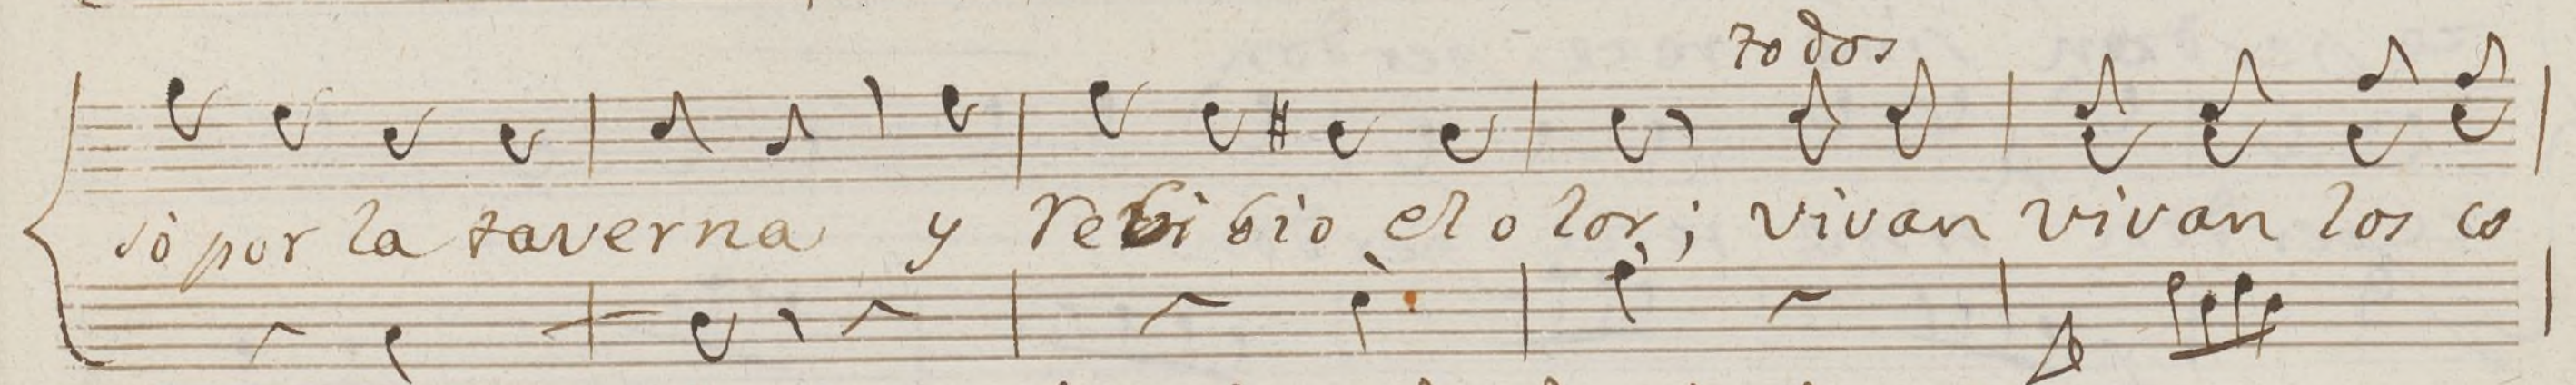 todos
sò por la taverna y rebibio el olor; vivan vivan los co